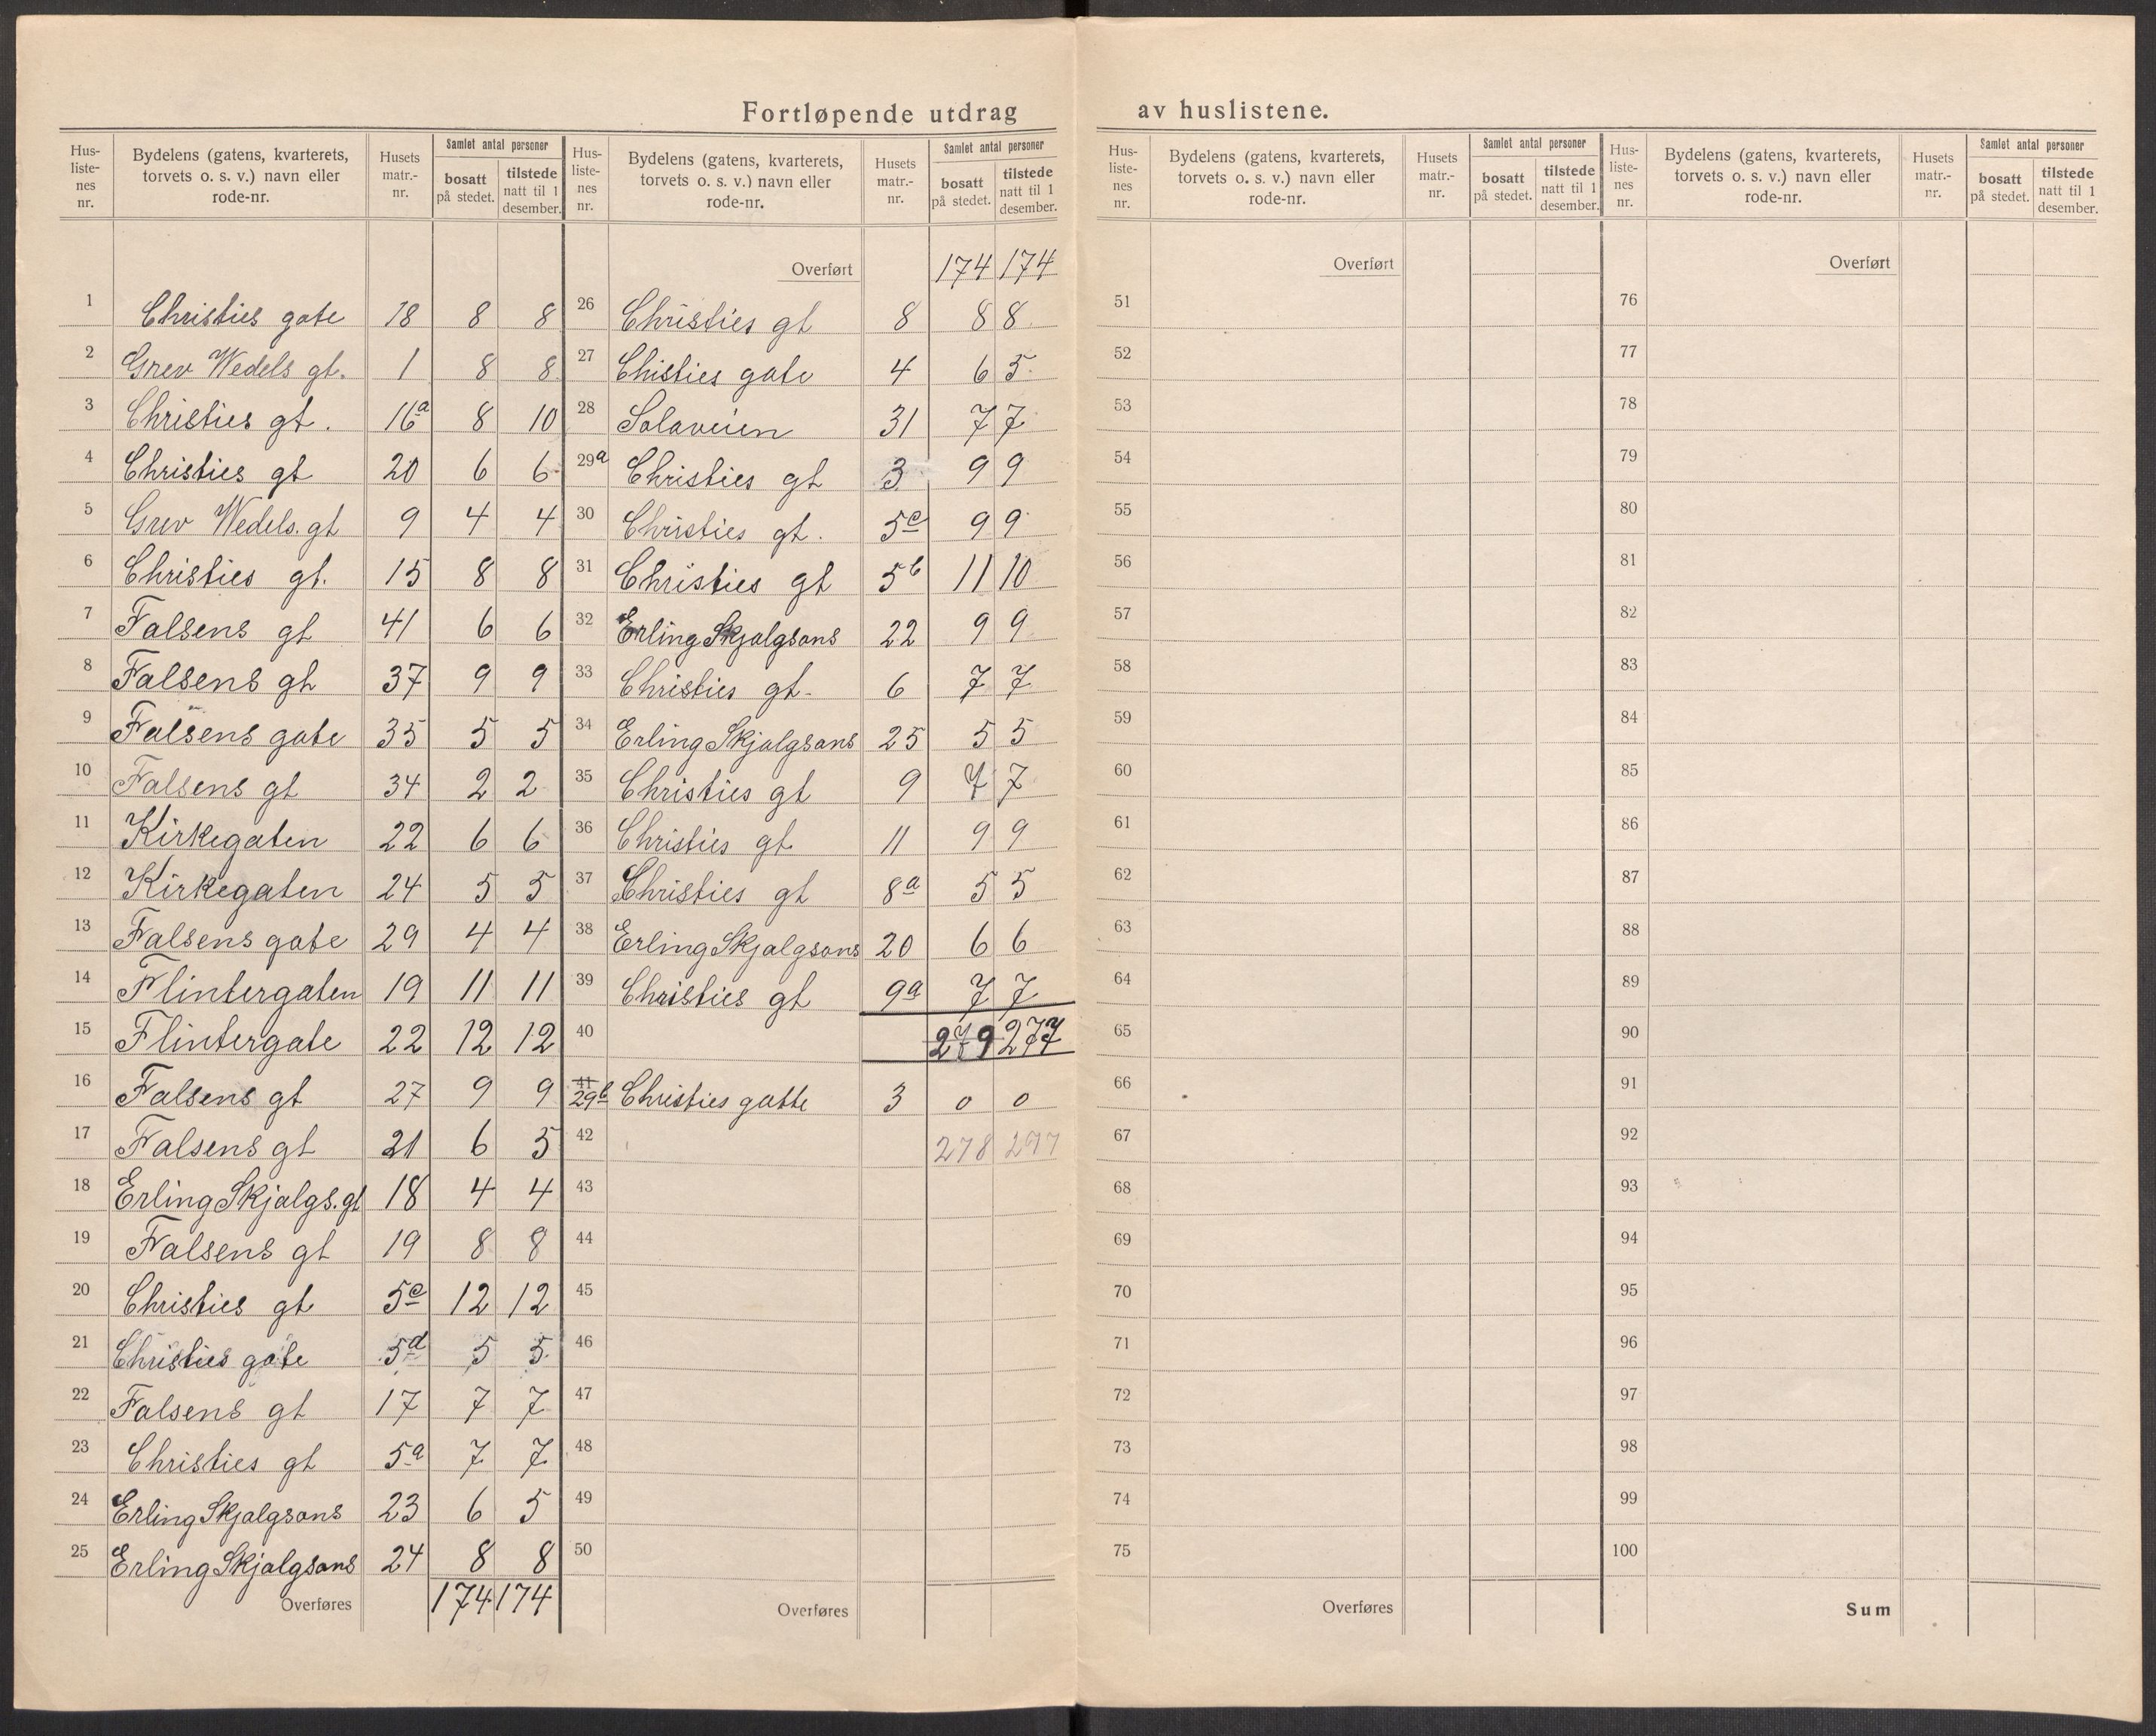 Fortløpende utdrag av huslistene.
Hus-listenes nr. Bydelens (gatens, kvarterets, torvets o. s. v.) navn eller rode-nr. Husets matr.-nr. Samlet antal personer bosatt på stedet. tilstede natt til 1 desember.
1 Christies gate 18 8 8
2 Grev Wedels gt. 1 8 8
3 Christies gt. 16a 8 10
4 Christies gt 20 6 6
5 Grev Wedels. gt 9 4 4
6 Christies gt. 15 8 8
7 Falsens gt 41 6 6
8 Falsens gt 37 9 9
9 Falsens gate 35 5 5
10 Falsens gt 34 2 2
11 Kirkegaten 22 6 6
12 Kirkegaten 24 5 5
13 Falsens gate 29 4 4
14 Flintergaten 19 11 11
15 Flintergate 22 12 12
16 Falsens gt 27 9 9
17 Falsens gt 21 6 5
18 Erling Skjalgs. gt 18 4 4
19 Falsens gt 19 8 8
20 Christies gt 5c 12 12
21 Christies gate 5d 5 5
22 Falsens gt 17 7 7
23 Christies gt 5a 7 7
24 Erling Skjalgsons 23 6 5
25 Erling Skjalgsons 24 8 8
Overføres 174 174
Hus-listenes nr. Bydelens (gatens, kvarterets, torvets o. s. v.) navn eller rode-nr. Husets matr.-nr. Samlet antal personer bosatt på stedet. tilstede natt til 1 desember.
Overført 174 174
26 Christies gt 8 8 8
27 Chisties gate 4 6 5
28 Solaveien 31 7 7
29a Christies gt 3 9 9
30 Christies gt. 5e 9 9
31 Christies gt 5b 11 10
32 Erling Skjalgsons 22 9 9
33 Christies gt. 6 7 7
34 Erling Skjalgsons 25 5 5
35 Christies gt 9 7 7
36 Christies gt 11 9 9
37 Christies gt 8a 5 5
38 Erling Skjalgsons 20 6 6
39 Christies gt 9a 7 7
40 279 277
41 29b Christies gatte 3 0 0
42 278 277
43
44
45
46
47
48
49
50
Overføres
Hus-listenes nr. Bydelens (gatens, kvarterets, torvets o. s. v.) navn eller rode-nr. Husets matr.-nr. Samlet antal personer bosatt på stedet. tilstede natt til 1 desember.
Overført
51
52
53
54
55
56
57
58
59
60
61
62
63
64
65
66
67
68
69
70
71
72
73
74
75
Overføres
Hus-listenes nr. Bydelens (gatens, kvarterets, torvets o. s. v.) navn eller rode-nr. Husets matr.-nr. Samlet antal personer bosatt på stedet. tilstede natt til 1 desember.
Overført
76
77
78
79
80
81
82
83
84
85
86
87
88
89
90
91
92
93
94
95
96
97
98
99
100
Sum